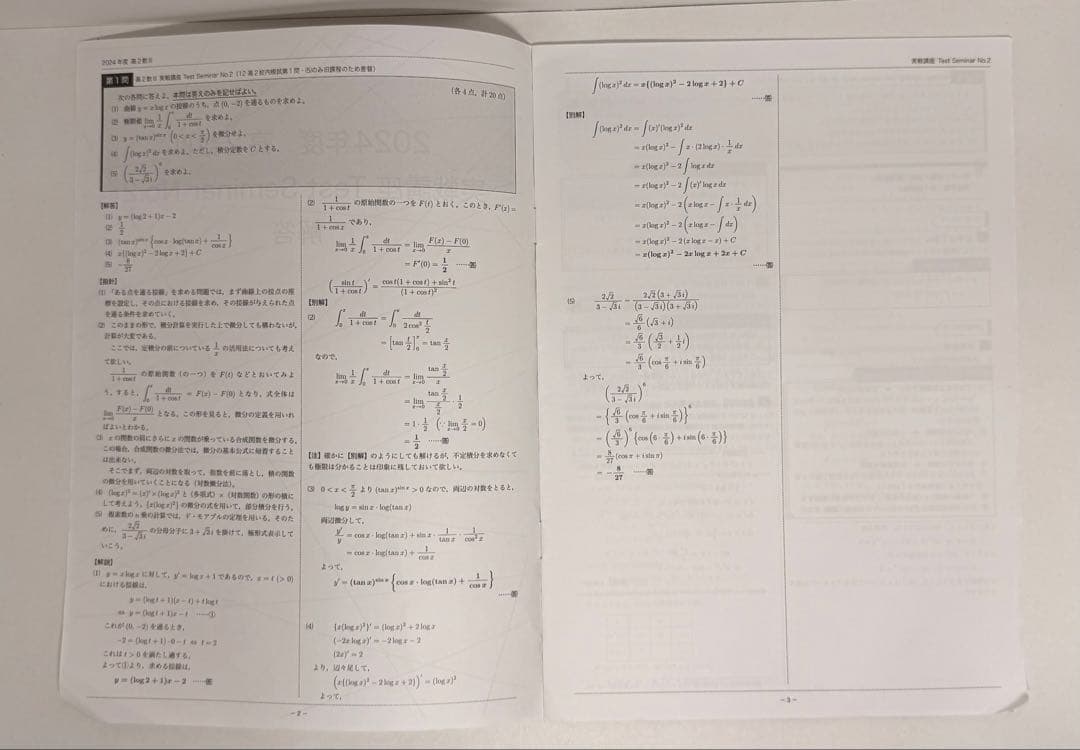 2024年度 高2数Ⅲ
第1問 高2数Ⅲ 実戦講座 Test Seminar No.2 (12 高2校内模試第1問・(5)のみ旧課程のため差替)
次の各問に答えよ。本問は答えのみを記せばよい。 (各4点, 計20点)
(1) 曲線 y = x log x の接線のうち, 点 (0, −2) を通るものを求めよ。
(2) 極限値 lim_{x→0} 1/x ∫_0^x dt/(1+cos t) を求めよ。
(3) y = (tan x)^{sin x} (0 < x < π/2) を微分せよ。
(4) ∫(log x)² dx を求めよ。ただし, 積分定数を C とする。
(5) (2√2/(3−√3i))^6 を求めよ。
【解答】
(1) y = (log 2 + 1)x − 2
(2) 1/2
(3) (tan x)^{sin x} {cos x · log(tan x) + 1/cos x}
(4) x{(log x)² − 2 log x + 2} + C
(5) −8/27
【指針】
(1) 「ある点を通る接線」を求める問題では, まず曲線上の接点の座
標を設定し, その点における接線を求め, その接線が与えられた点
を通る条件を求めていく。
(2) このままの形で, 積分計算を実行した上で微分しても構わないが,
計算が大変である。
ここでは, 定積分の前についている 1/x の活用法についても考え
て欲しい。
1/(1+cos t) の原始関数 (の一つ) を F(t) などとおいてみよ
う。すると, ∫_0^x dt/(1+cos t) = F(x) − F(0) となり, 式全体は
lim_{x→0} (F(x) − F(0))/x となる。この形を見ると, 微分の定義を用いれ
ばよいとわかる。
(3) x の関数の肩にさらに x の関数が乗っている合成関数を微分する。
この場合, 合成関数の微分法では, 微分の基本公式に帰着すること
は出来ない。
そこでまず, 両辺の対数を取って, 指数を前に落とし, 積の関数
の微分を用いていくことになる (対数微分法)。
(4) (log x)² = (x)′ × (log x)² と (多項式) × (対数関数) の形の積に
して考えよう。{x(log x)²} の微分の式を用いて, 部分積分を行う。
(5) 複素数の n 乗の計算では, ド・モアブルの定理を用いる。そのた
めに, 2√2/(3−√3i) の分母分子に 3 + √3i を掛けて, 極形式表示して
いこう。
【解説】
(1) y = x log x に対して, y′ = log x + 1 であるので, x = t (> 0)
における接線は,
y = (log t + 1)(x − t) + t log t
⇔ y = (log t + 1)x − t ……①
これが (0, −2) を通るとき,
−2 = (log t + 1)·0 − t ⇔ t = 2
これは t > 0 を満たし適する。
よって①より, 求める接線は,
y = (log 2 + 1)x − 2 ……答
(2) 1/(1+cos t) の原始関数の一つを F(t) とおく。このとき, F′(x) =
1/(1+cos x) であり,
lim_{x→0} 1/x ∫_0^x dt/(1+cos t) = lim_{x→0} (F(x) − F(0))/x
= F′(0) = 1/2 ……答
(sin t/(1+cos t))′ = (cos t(1+cos t) + sin² t)/(1+cos t)²
【別解】
(2) ∫_0^x dt/(1+cos t) = ∫_0^x dt/(2cos² t/2)
= [tan t/2]_0^x = tan x/2
なので,
lim_{x→0} 1/x ∫_0^x dt/(1+cos t) = lim_{x→0} (tan x/2)/x
= lim_{x→0} (tan x/2)/(x/2) · 1/2
= 1 · 1/2 (∵ lim_{x→0} x/2 = 0)
= 1/2 ……答
【注】確かに【別解】のようにしても解けるが, 不定積分を求めなくて
も極限は分かることは印象に残しておいて欲しい。
(3) 0 < x < π/2 より (tan x)^{sin x} > 0 なので, 両辺の対数をとると,
log y = sin x · log(tan x)
両辺微分して,
y′/y = cos x · log(tan x) + sin x · 1/tan x · 1/cos² x
= cos x · log(tan x) + 1/cos x
よって,
y′ = (tan x)^{sin x} {cos x · log(tan x) + 1/cos x}
……答
(4) {x(log x)²}′ = (log x)² + 2 log x
(−2x log x)′ = −2 log x − 2
(2x)′ = 2
より, 辺々足して,
(x{(log x)² − 2 log x + 2})′ = (log x)²
よって,
−2−
実戦講座 Test Seminar No.2
∫(log x)² dx = x{(log x)² − 2 log x + 2} + C
……答
【別解】
∫(log x)² dx = ∫(x)′(log x)² dx
= x(log x)² − ∫ x · (2 log x) · 1/x dx
= x(log x)² − 2 ∫ log x dx
= x(log x)² − 2 ∫(x)′ log x dx
= x(log x)² − 2 (x log x − ∫ x · 1/x dx)
= x(log x)² − 2 (x log x − ∫ dx)
= x(log x)² − 2(x log x − x) + C
= x(log x)² − 2x log x + 2x + C
……答
(5) 2√2/(3−√3i) = 2√2(3+√3i)/((3−√3i)(3+√3i))
= √6/6 (√3 + i)
= √6/3 (√3/2 + 1/2 i)
= √6/3 (cos π/6 + i sin π/6)
よって,
(2√2/(3−√3i))^6
= {√6/3 (cos π/6 + i sin π/6)}^6
= (√6/3)^6 {cos(6 · π/6) + i sin(6 · π/6)}
= 8/27 (cos π + i sin π)
= −8/27 ……答
−3−